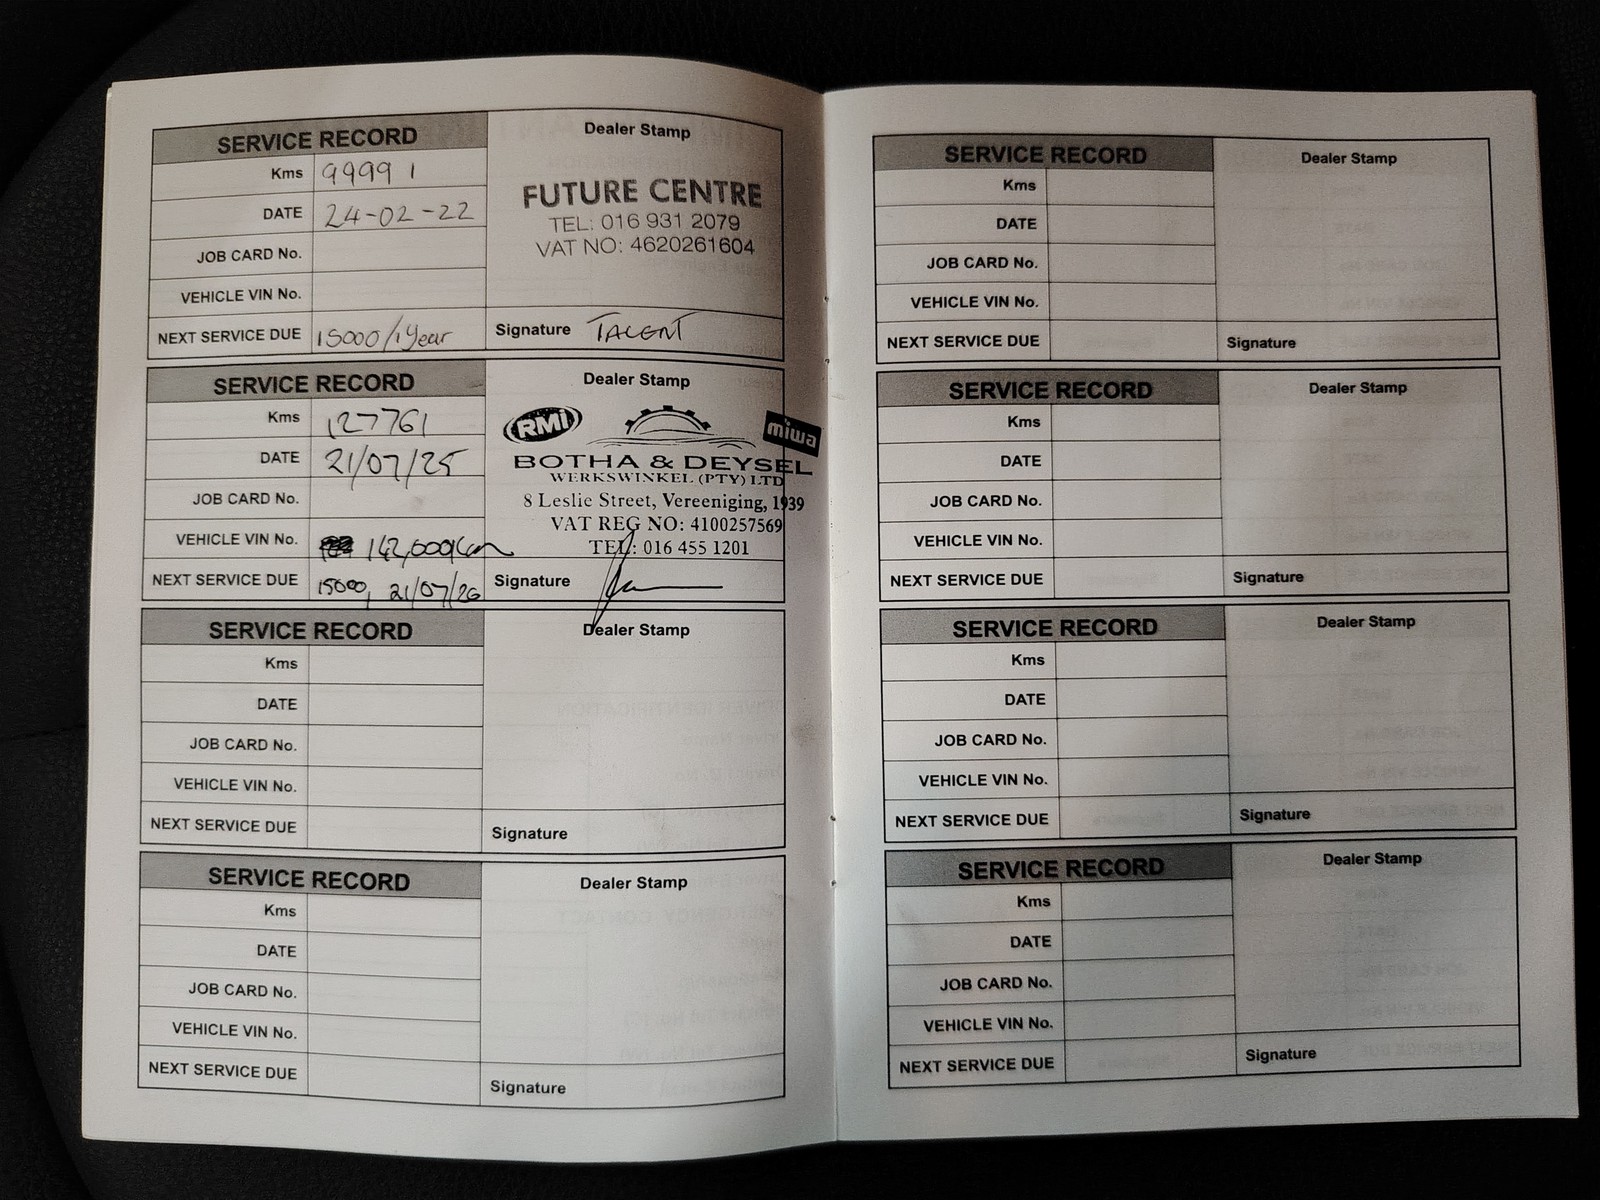 SERVICE RECORD
Dealer Stamp
Kms 99991
DATE 24-02-22
JOB CARD No.
VEHICLE VIN No.
NEXT SERVICE DUE 15000/1 Year
FUTURE CENTRE
TEL: 016 931 2079
VAT NO: 4620261604
Signature TALENT
SERVICE RECORD
Dealer Stamp
Kms 127761
DATE 21/07/25
JOB CARD No.
VEHICLE VIN No. 142,000km
NEXT SERVICE DUE 15000, 21/07/26
RMI
miwa
BOTHA & DEYSEL
WERKSWINKEL (PTY) LTD
8 Leslie Street, Vereeniging, 1939
VAT REG NO: 4100257569
TEL: 016 455 1201
Signature
SERVICE RECORD
Dealer Stamp
Kms
DATE
JOB CARD No.
VEHICLE VIN No.
NEXT SERVICE DUE
Signature
SERVICE RECORD
Dealer Stamp
Kms
DATE
JOB CARD No.
VEHICLE VIN No.
NEXT SERVICE DUE
Signature
SERVICE RECORD
Dealer Stamp
Kms
DATE
JOB CARD No.
VEHICLE VIN No.
NEXT SERVICE DUE
Signature
SERVICE RECORD
Dealer Stamp
Kms
DATE
JOB CARD No.
VEHICLE VIN No.
NEXT SERVICE DUE
Signature
SERVICE RECORD
Dealer Stamp
Kms
DATE
JOB CARD No.
VEHICLE VIN No.
NEXT SERVICE DUE
Signature
SERVICE RECORD
Dealer Stamp
Kms
DATE
JOB CARD No.
VEHICLE VIN No.
NEXT SERVICE DUE
Signature